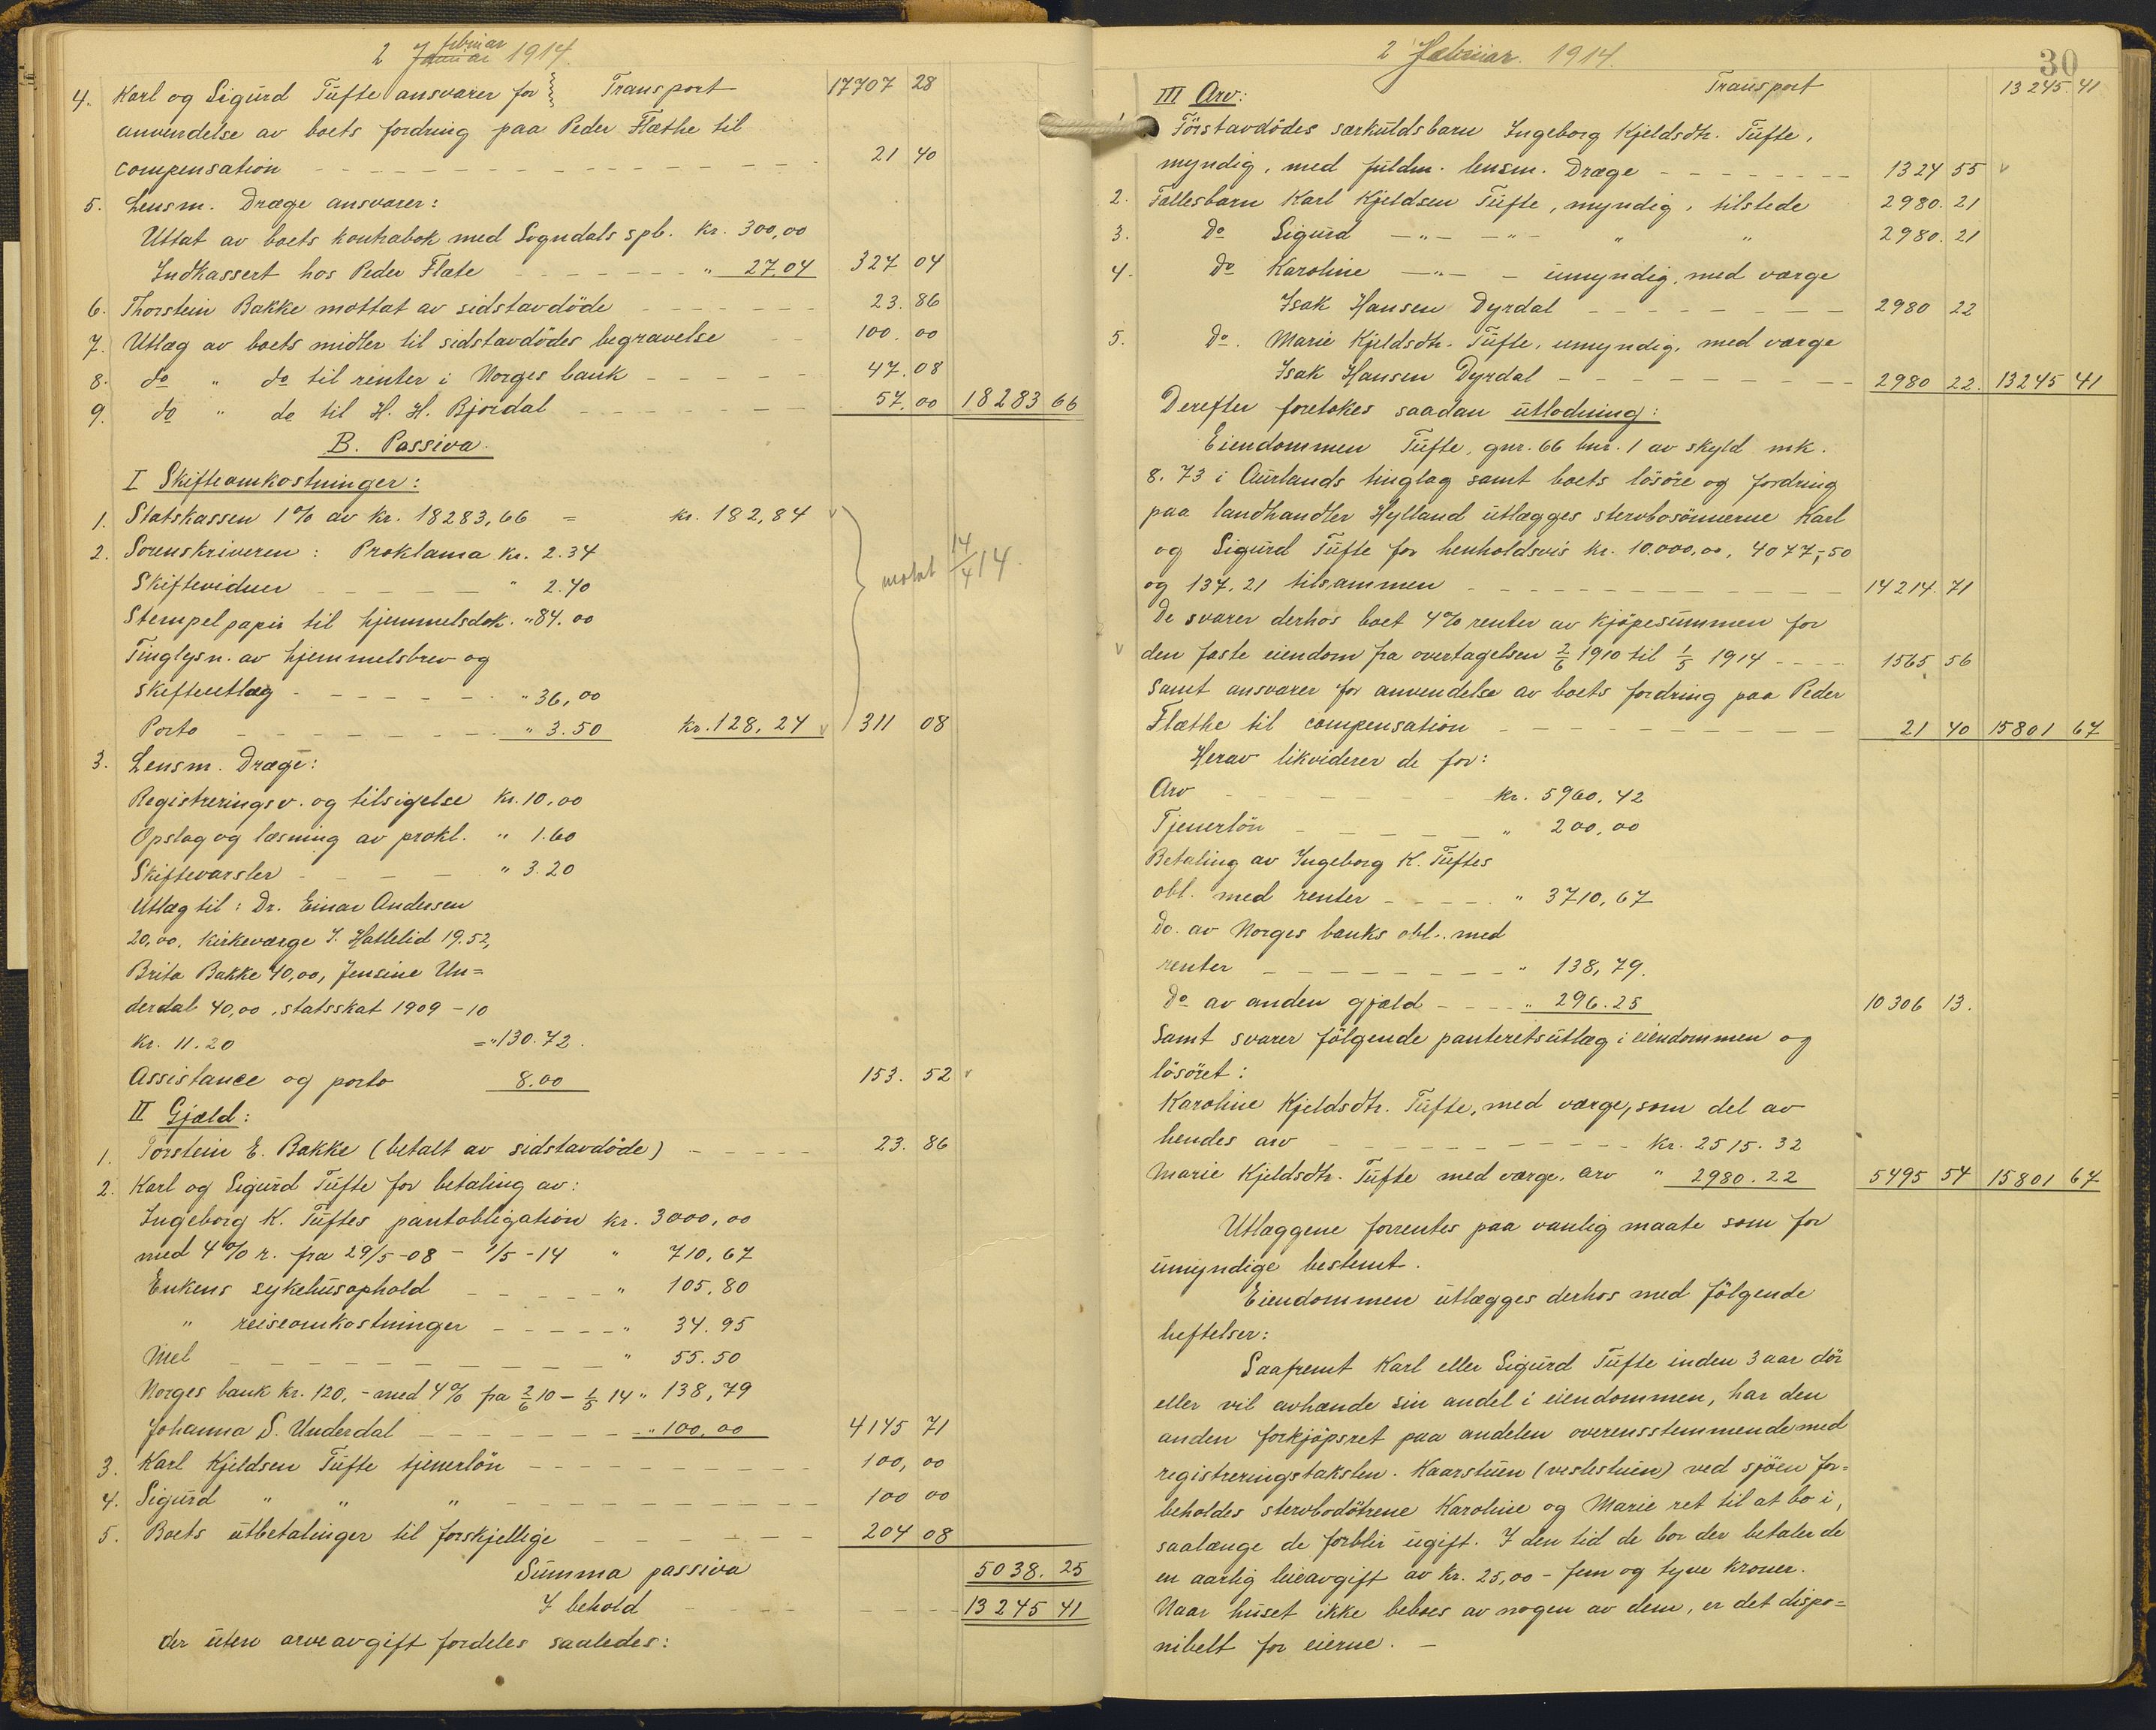 2 Januar februar 1914.
4. Karl og Sigurd Tufte ansvarer for Transport 17707 28
anvendelse av boets fordring paa Peder Flæthe til
compensation 21 40
5. Lensm. Dræge ansvarer:
Uttat av boets kontrabok med Sogndals spb. kr. 300,00
Indkassert hos Peder Flate " 27.04 327 04
6. Thorstein Bakke mottat av sidstavdöde 23.86
7. Utlæg av boets midler til sidstavdödes begravelse 100.00
8. do " do til renter i Norges bank 47.08
9. do " do til H. H. Bjordal 57.00 18283 66
B. Passiva.
I Skifteomkostninger:
1. Statskassen 1% av kr. 18283,66 = kr. 182,84
2. Sorenskriveren: Proklama kr. 2.34
Skiftevidner " 2.40
motat 14/4 14.
Stempelpapir til hjemmelsdok. " 84.00
Tinglysn. av hjemmelsbrev og
skifteutlæg " 36,00
Porto " 3.50 kr. 128,24 311 08
3. Lensm. Dræge:
Registreringsv. og tilsigelse kr. 10,00
Opslag og læsning av prokl. " 1.60
Skiftevarsler " 3.20
Utlæg til: Dr. Einar Andersen
20,00, kirkeværge J. Hatlelid 19.52,
Brita Bakke 40,00, Jensine Un=
derdal 40,00, statsskat 1909-10
kr. 11.20 = " 130.72.
Assistance og porto 8.00 153.52
II Gjæld:
1. Torstein E. Bakke (betalt av sidstavdöde) 23.86
2. Karl og Sigurd Tufte for betaling av:
Ingeborg K. Tuftes pantobligation kr. 3000,00
med 4% r. fra 29/5-08 - 1/5-14 " 710,67
Enkens sykehusophold " 105,80
" reiseomkostninger " 34.95
Mel " 55.50
Norges bank kr. 120,- med 4% fra 2/6 10 - 1/5 14 " 138,79
Johanna S. Underdal " 100.00 4145 71
3. Karl Kjeldsen Tufte tjenerlön 100,00
4. Sigurd " " " 100 00
5. Boets utbetalinger til forskjellige 204 08
Summa passiva 5038.25
I behold 13245 41
der uten arveavgift fordeles saaledes:
2 Februar. 1914.
30
Transport 13245.41
III Arv:
1. Förstavdödes særkuldsbarn Ingeborg Kjeldsdtr. Tufte,
myndig, med fuldm. lensm. Dræge 1324 55
2. Fællesbarn Karl Kjeldsen Tufte, myndig, tilstede 2980.21
3. Do Sigurd -"- -"- " " 2980.21
4. Do Karoline -"- - umyndig, med værge
Isak Hansen Dyrdal 2980 22
5. Do. Marie Kjeldsdtr. Tufte, umyndig, med værge
Isak Hansen Dyrdal 2980 22. 13245 41
Derefter foretokes saadan utlodning:
Eiendommen Tufte, gnr. 66 bnr. 1 av skyld mk.
8.73 i Aurlands tinglag samt boets lösöre og fordring
paa landhandler Hylland utlægges stervbosönnerne Karl
og Sigurd Tufte for henholdsvis kr. 10.000,00, 4077,50
og 137,21 tilsammen 14214.71
De svarer derhos boet 4% renter av kjöpesummen for
den faste eiendom fra overtagelsen 2/6 1910 til 1/5 1914 1565 56
samt ansvarer for anvendelse av boets fordring paa Peder
Flæthe til compensation 21 40 15801 67
Herav likviderer de for:
Arv kr. 5960,42
Tjenerlön " 200,00
Betaling av Ingeborg K. Tuftes
obl. med renter " 3710,67
Do. av Norges banks obl. med
renter " 138,79.
Do av anden gjæld " 296.25 10306 13.
Samt svarer fölgende panteretsutlæg i eiendommen og
lösöret:
Karoline Kjeldsdtr. Tufte, med værge, som del av
hendes arv kr. 2515.32
Marie Kjeldsdtr. Tufte med værge, arv " 2980.22 5495 54 15801 67
Utlæggene forrentes paa vanlig maate som for
umyndige bestemt.
Eiendommen utlægges derhos med fölgende
heftelser:
Saafremt Karl eller Sigurd Tufte inden 3 aar dör
eller vil avhænde sin andel i eiendommen, har den
anden forkjöpsret paa andelen overensstemmende med
registreringstaksten. Kaarstuen (veslestuen) ved sjöen for=
beholdes stervbodötrene Karoline og Marie ret til at bo i,
saalænge de forblir ugift. I den tid de bor der betaler de
en aarlig leieavgift av kr. 25,00 - fem og tyve kroner.
Naar huset ikke beboes av nogen av dem, er det dispo=
nibelt for eierne. -